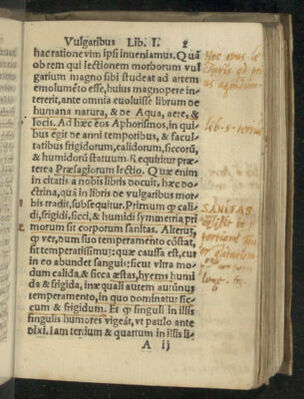 Vulgaribus Lib. I. 2
hac ratione vim ipsi inueniamus. Quã
ob rem qui lectionem morborum vul
garium magno sibi studeat ad artem
emolumẽto esse, huius magnopere in-
tererit, ante omnia euoluisse librum de
humana natura, & de Aqua, aere, &
locis. Ad hæc eos Aphorismos, in qui-
bus egit de anni temporibus, & facul-
tatibus frigidorum, calidorum, siccorũ,
& humidorũ statuum. Requiritur præ-
terea Præsagiorum lectio. Quæ enim
in citatis a nobis libris docuit, hæc do-
ctrina, quã in libris de vulgaribus mor-
bis tradit, subsequitur. Primum ꝙ cali-
di, frigidi, sicci, & humidi symmetria pri
morum sit corporum sanitas. Alterũ,
ꝙ ver, dum suo temperamento cõstat,
sit temperatissimũ: quæ caussa est, cur
in eo abundet sanguis: sicut vltra mo-
dum calida, & sicca æstas, hyems humi
da & frigida, inæquali autem autũnus
temperamento, in quo dominatur sic-
cum & frigidum. Et ꝙ singuli in illis
singulis humores vigeãt, vt paulo ante
dixi. Iam tertium & quartum in illis li-
A ij
SANITAS